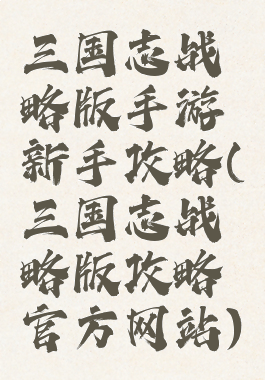 三国志战
略版手游
新手攻略(
三国志战
略版攻略
官方网站)